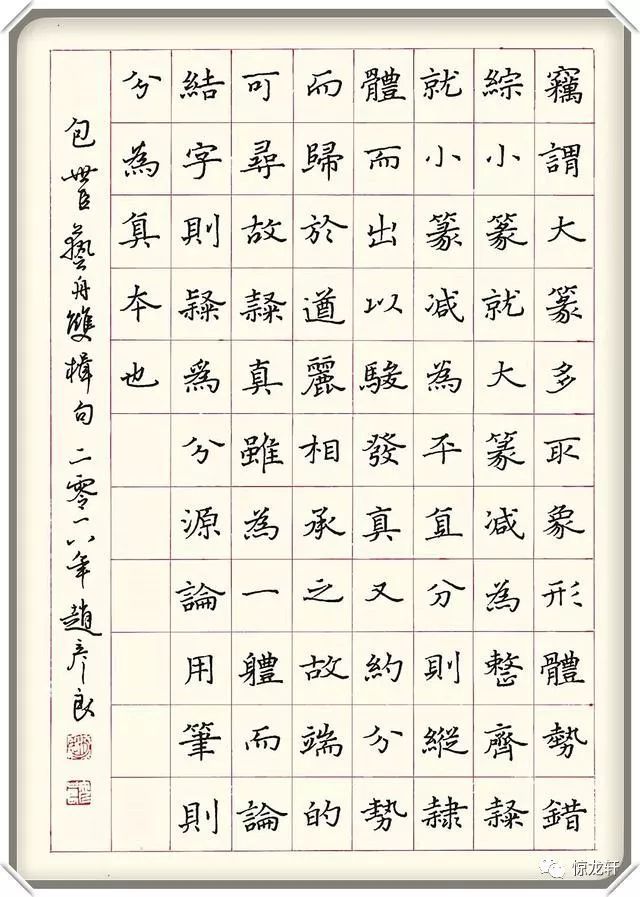 竊謂大篆多取象形體勢錯
綜小篆就大篆減為整齊隸
就小篆减為平直分則縱隸
體而出以駿發真又約分勢
而歸於遒麗相承之故端的
可尋故隸真雖為一軆而論
結字則隸爲分源論用筆則
分為真本也
包世臣藝舟雙楫句二零一八年趙彥良
惊龙轩